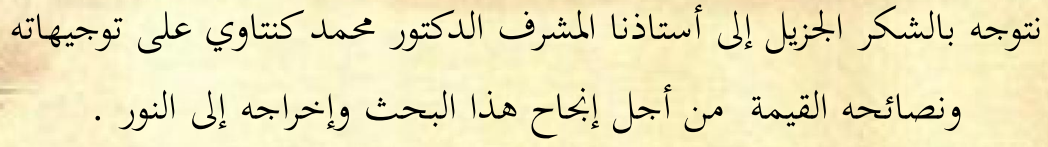 نتوجه بالشكر الجزيل إلى أستاذنا المشرف الدكتور محمد كنتاوي على توجيهاته
ونصائحه القيمة من أجل إنجاح هذا البحث وإخراجه إلى النور .